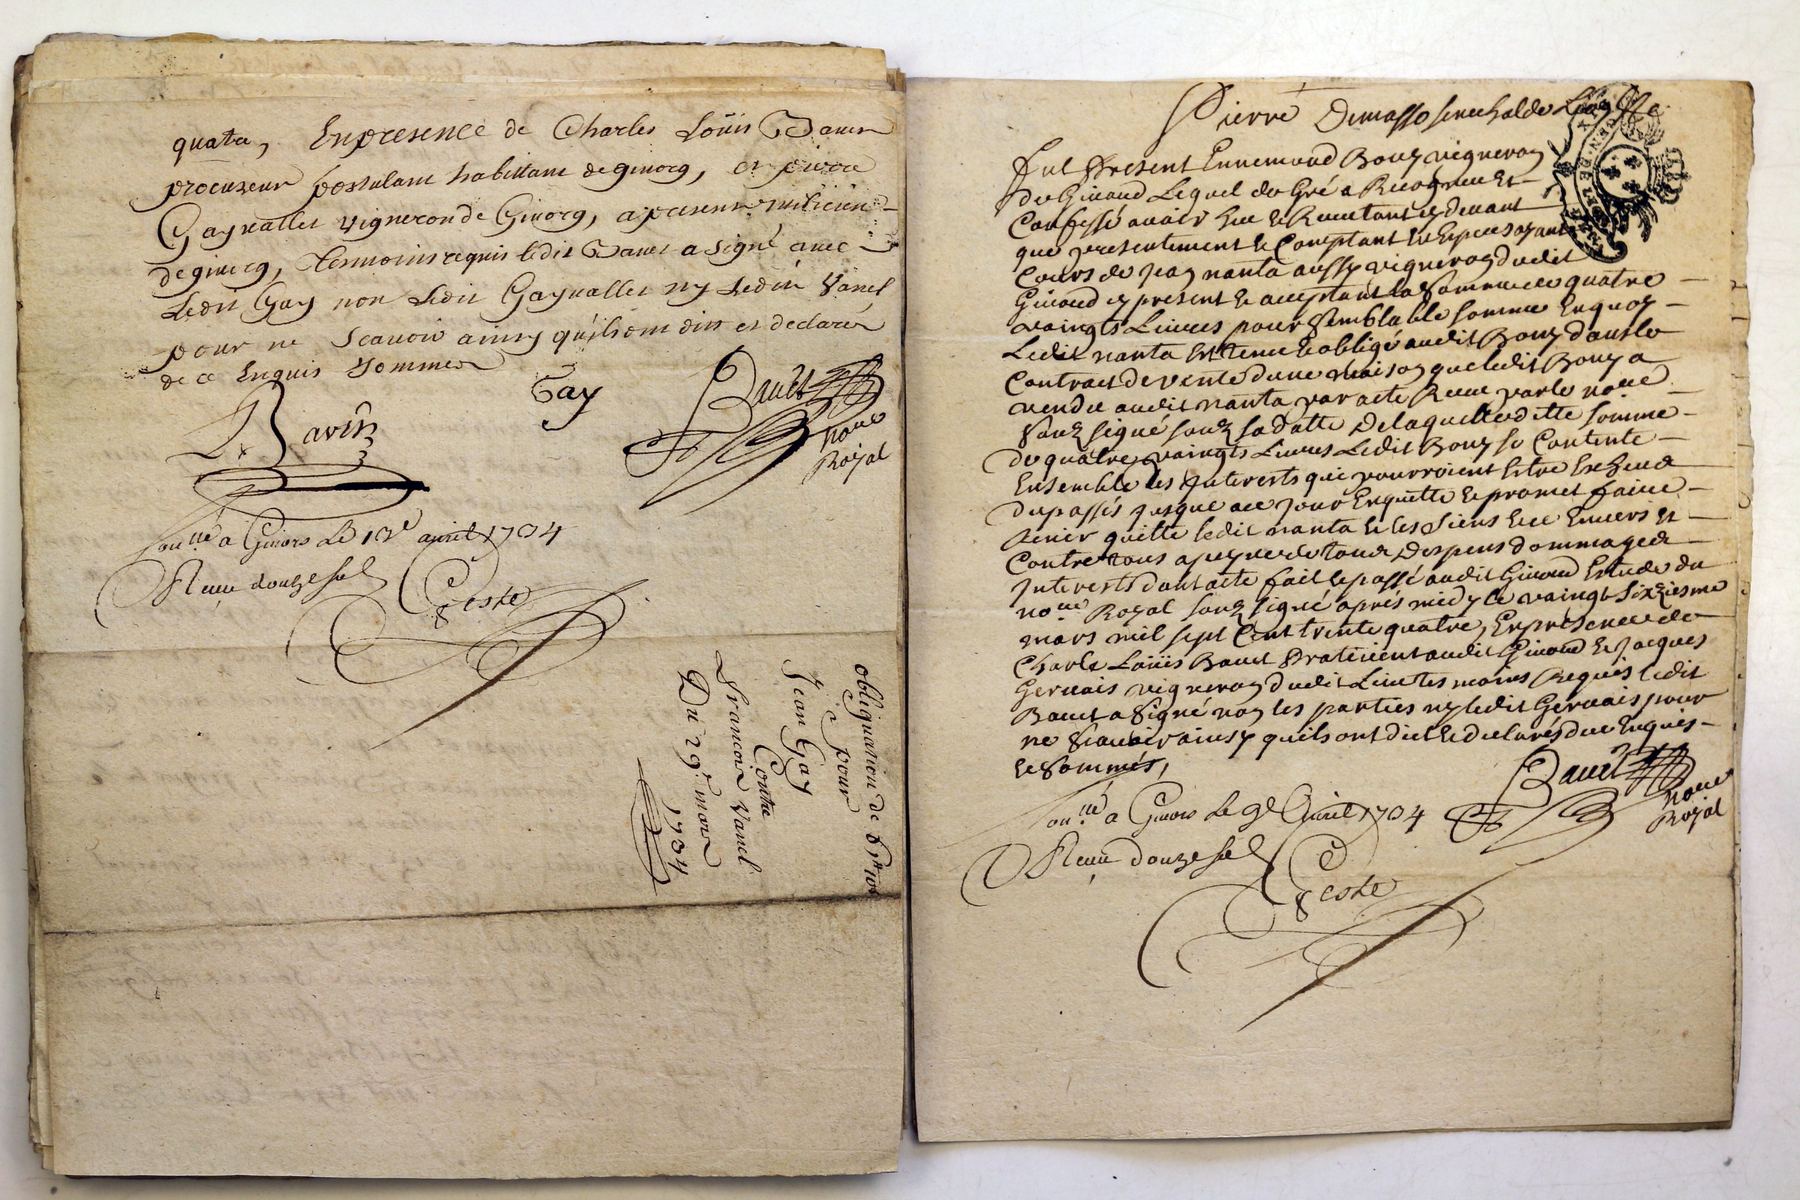 quatre, En presence de Charles Loüis Bauet
procureur postulant habittant de givorg, et pierre
Gaynallet vigneron de Givorg, a present milicien
de givorg, tesmoins requis ledit Bauet a signé avec
Ledit Gay non Ledit Gaynallet ny Ledit Vanel
pour ne Scavoir ainsy quils ont dit et declaré
de ce Enquis Sommés
Gay
Bauet
nore
Royal
Con.llé a Givors Le 12e avril 1734
Receu douze sol
Teste
obliguation de
pour
Jean Gay
Contre
francois Vanel
Du 29e mars
1734
Pierre Demasso senechal de Lyon &c
Fut Present Ennemond Bony vigneron
de Givord Lequel de Gré a Recogneu Et
Confessé avoir heu et Receu tant cy devant
que presentement et Comptant En Especes ayant
Cours de Jean nanta aussy vigneron dudit
Givord cy present et acceptant la Somme de quatre
vaingts Livres pour Semblable Somme En quoy
Ledit nanta Est tenu et obligé audit Bony dans le
Contract de vente dune maison que ledit Bony a
vendue audit nanta par acte Receu par le nore
Souz signé souz sa datte De laquelle ditte Somme
de quatre vaingts Livres Ledit Bony se Contente
Ensemble les Interests qui pourroient Estre Escheus
du passés jusque a ce jour En quitte et promet faire
tenir quitte ledit nanta et les Siens Envers Et
Contre tous a peyne de tous Despens dommages
Interests dont acte fait et passé audit Givord Estude du
nore Royal souz signé aprés midy le vaingt Sixziesme
mars mil sept Cent trente quatre, En présence de
Charle Loüis Bauet Praticient audit Givord et Jacques
Gervais vigneron dudit Lieu tesmoins Requis ledit
Bauet a Signé non les parties ny ledit Gervais pour
ne Scavoir ainsy quils ont dit et declarés de ce Enquis
et Sommés,
Bauet
nore
Royal
Con.llé a Givors Le 9e Avril 1734
Receu douze sol
Teste